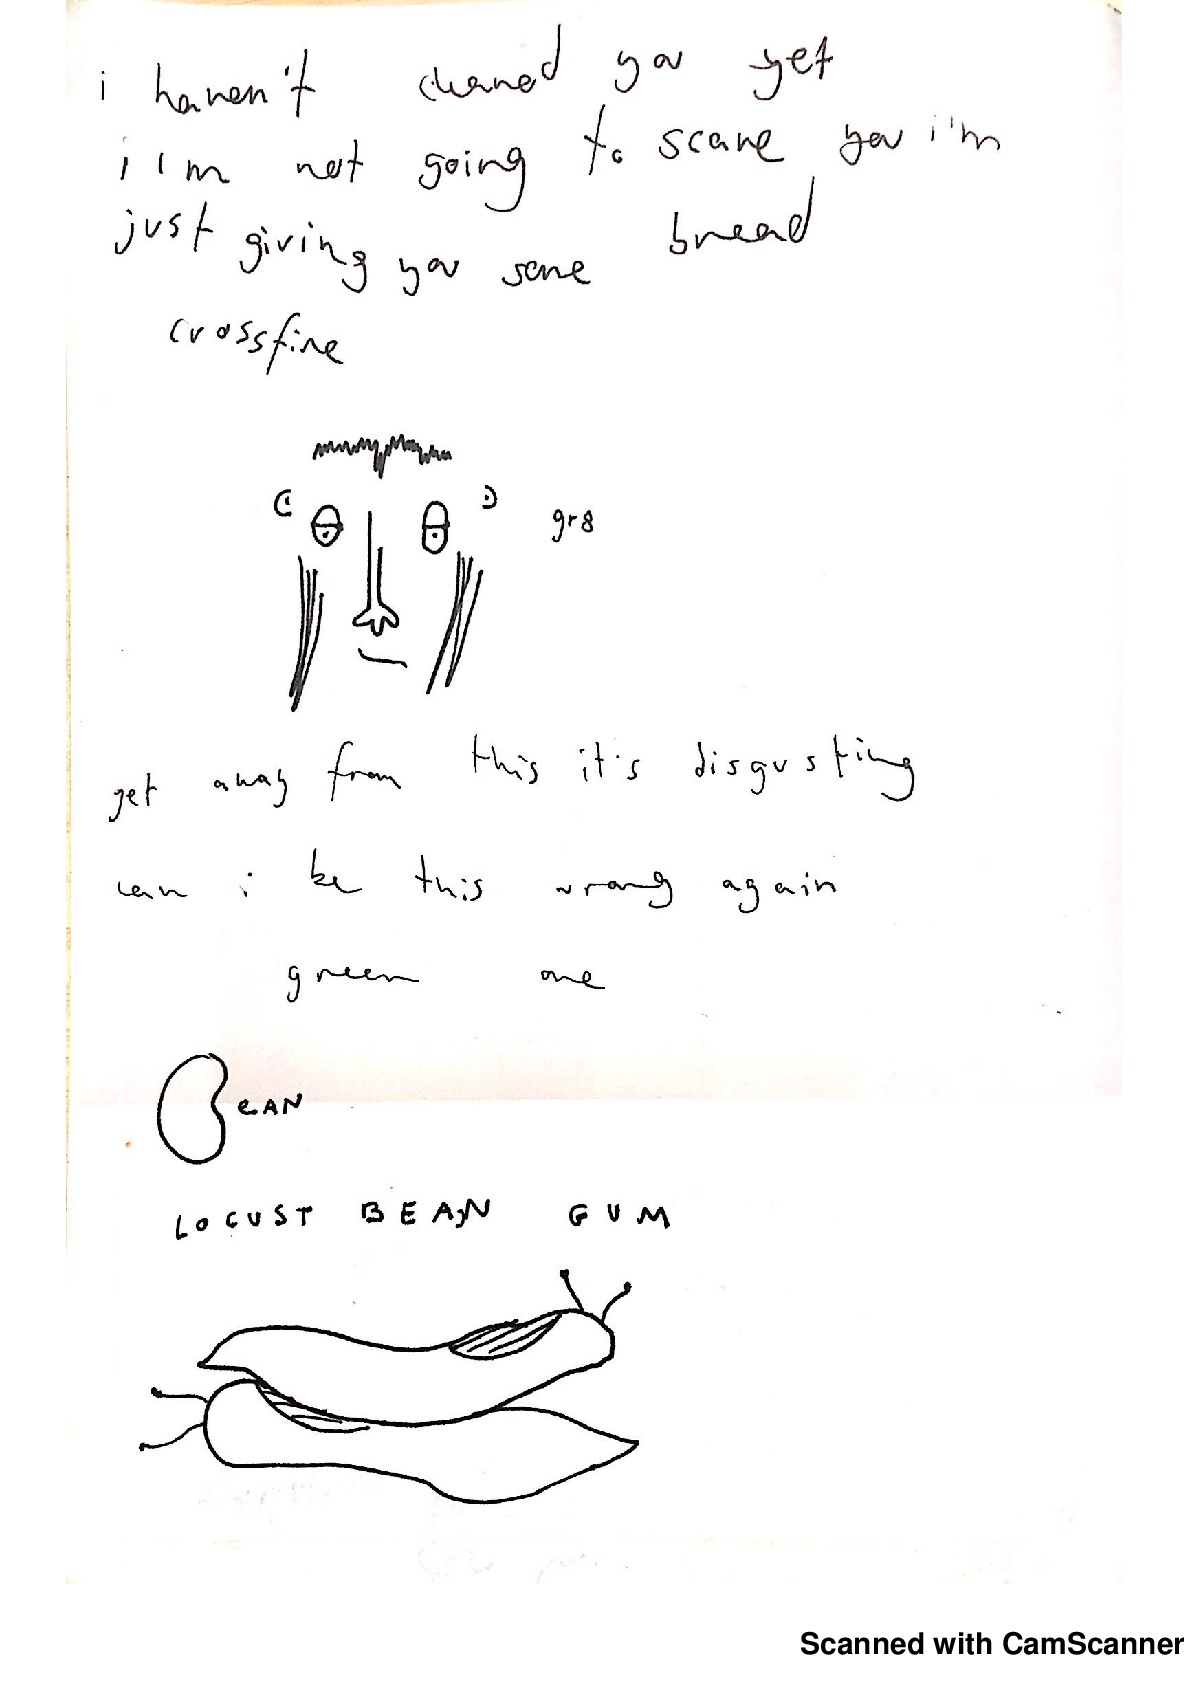 i haven't you yet
i'm not going to scare you i'm
just giving you some bread
crossfire
gr8
get away from this it's disgusting
can i be this wrong again
green one
BEAN
LOCUST BEAN GUM
Scanned with CamScanner